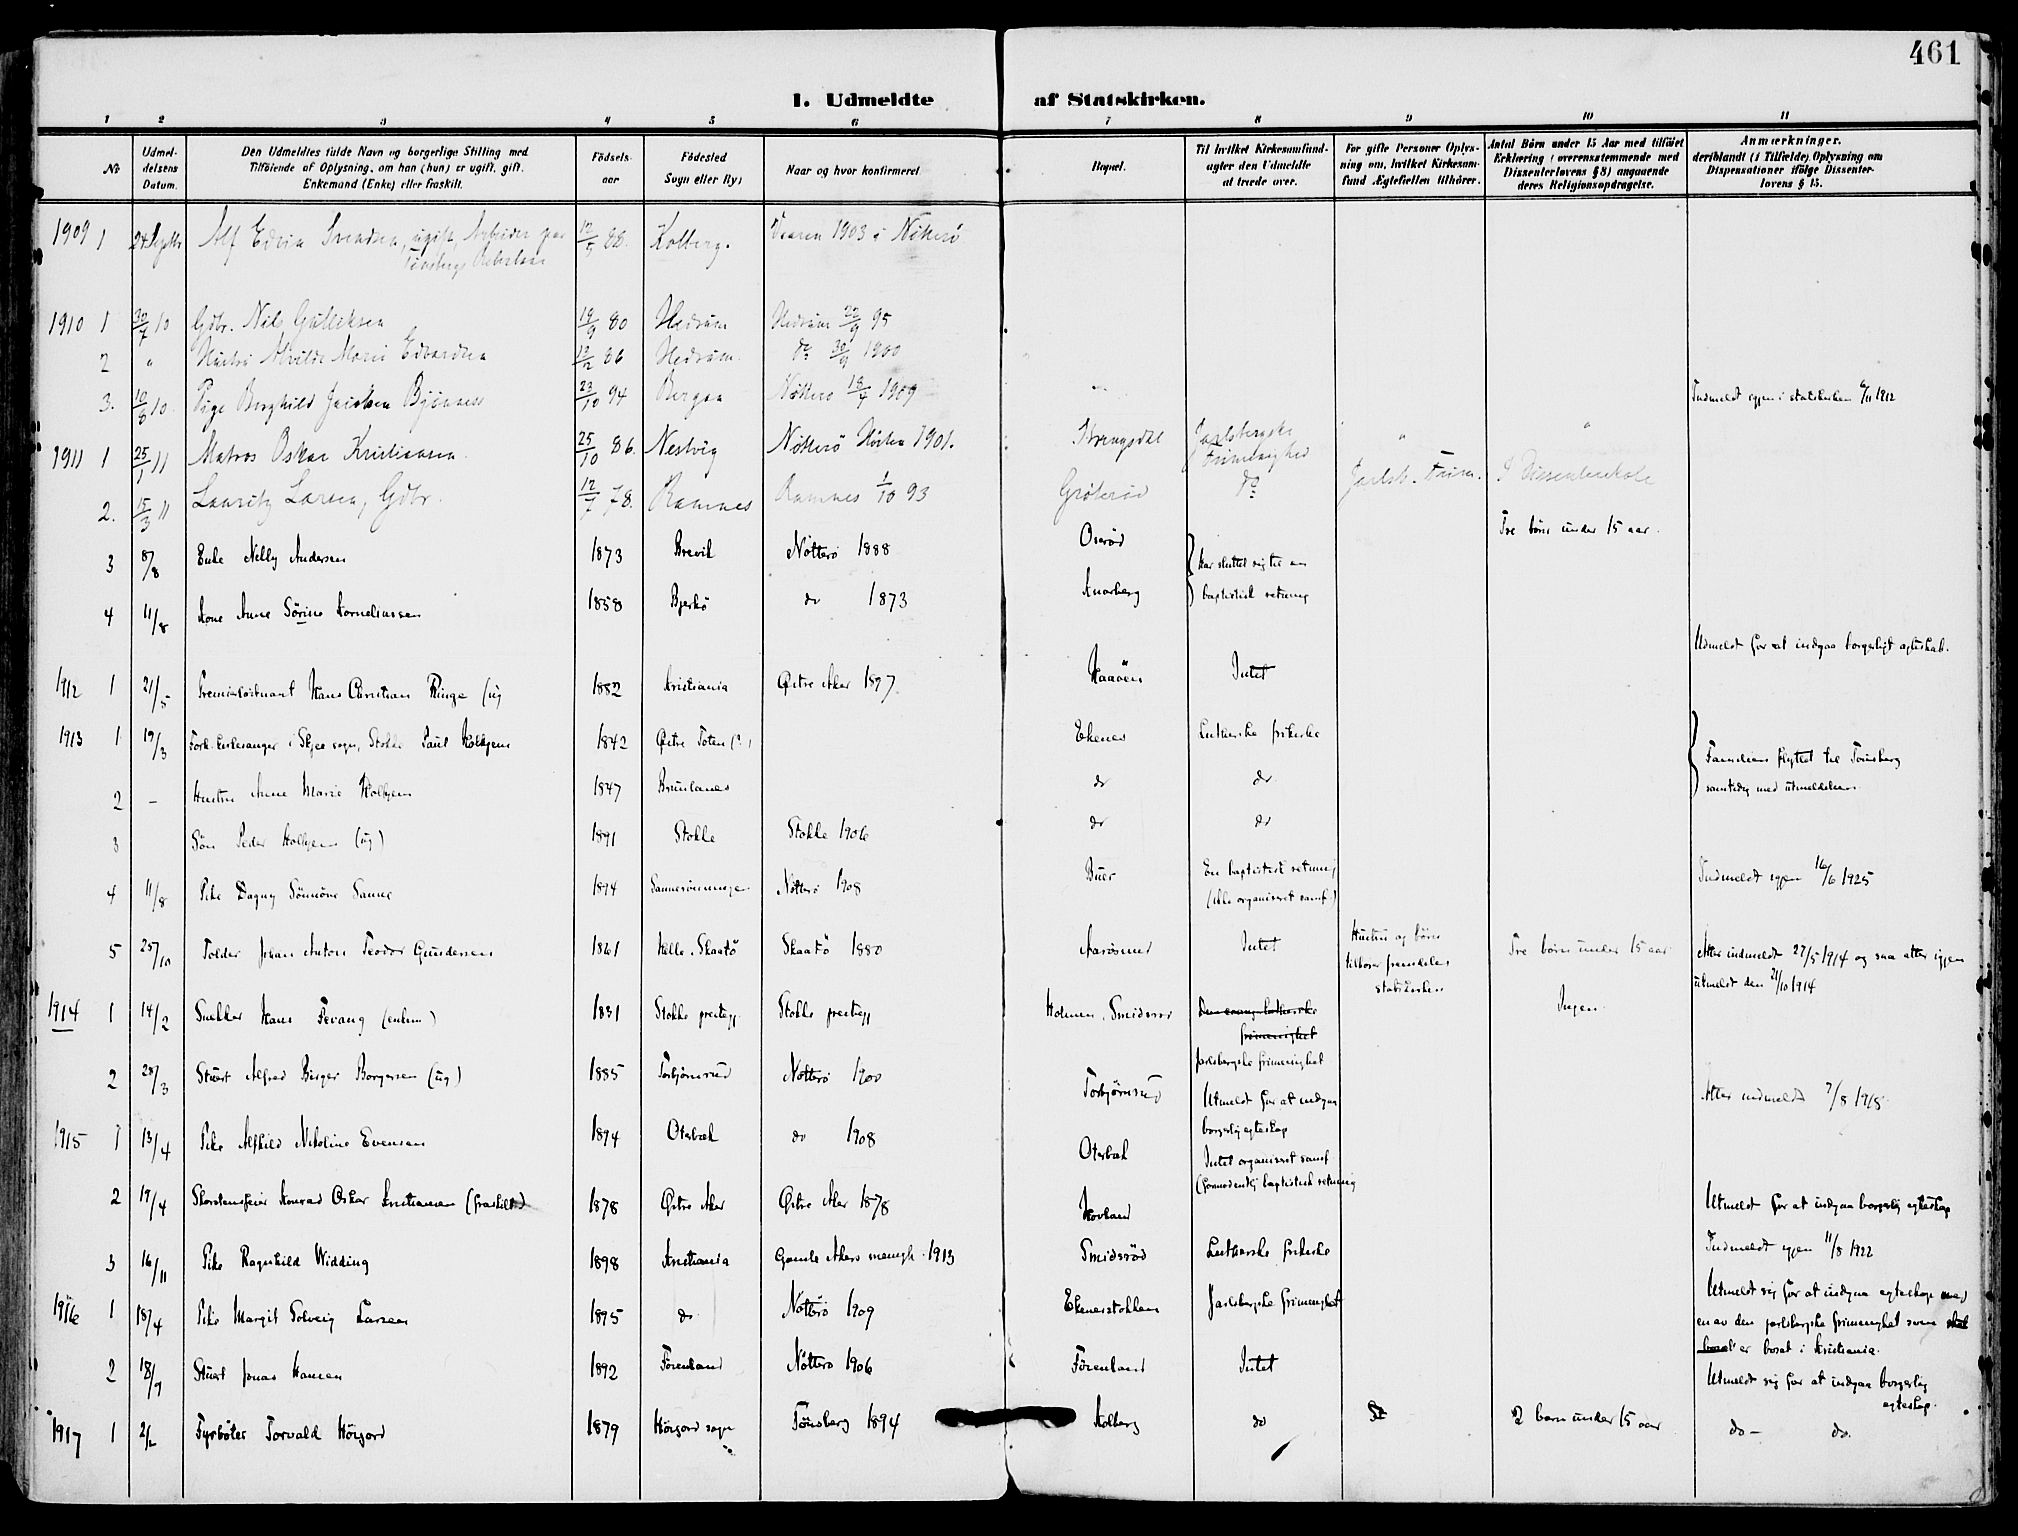 461
1. Udmeldte af Statskirken.
1 2 3 4 5 6 7 8 9 10 11
No
Udmeldelsens Datum.
Den Udmeldtes fulde Navn og borgerlige Stilling med
Tilføiende af Oplysning, om han (hun) er ugift, gift,
Enkemand (Enke) eller fraskilt.
Fødsels-aar
Fødested
Sogn eller By)
Naar og hvor konfirmeret
Bopæl.
Til hvilket Kirkesamfund
agter den Udmeldte
at træde over.
For gifte Personer Oplys-
ning om, hvilket Kirkesam-
fund Ægtefællen tilhører.
Antal Børn under 15 Aar med tilføiet
Erklæring (overensstemmende med
Dissenterlovens § 8) angaaende
deres Religionsopdragelse.
Anmærkninger,
deriblandt (i Tilfælde) Oplysning om
Dispensationer ifølge Dissenter-
lovens § 15.
1909 1 24 Septbr Alf Edvin Svendsen, ugift, Arbeider paa 12/9 88. Kolberg. 1903 i Nøtterø
Tønsbergs Reberbane
1910 1 30/7 10 Gdbr. Nils Gulliksen 19/9 80 Hedrum Hedrum 22/9 95
2 " Hustru Alvilde Marie Edvardsen 12/2 86 Hedrum. do 30/9 1900
3. 10/8 10. Pige Borghild Jacobea Bjönnes 23/10 94 Bergan Nøtterø 18/4 1909 Indmeldt igjen i statskirken 6/11 1912
1911 1 25/1 11 Matros Oskar Kristiansen. 25/10 86. Nesbvig Nøtterø Høsten 1901. Jarlsbergske Frimenighed " "
2. 15/3 11 Lauritz Larsen, Gdbr. 12/7 78. Ramnes Ramnes 1/10 93 Grøterød do Jarlsb. Frim. I Dissenterskole
3 8/8 Enke Nelly Andersen 1873 Brevik Nøtterö 1888 Oserød { Har sluttet sig til en Tre börn under 15 aar.
4 11/8 Kone Anne Sörine Korneliussen 1858 Bjerkö do 1873 Knarberg baptistisk retning
1912 1 21/5 Premierløitnant Hans Christian Ringe (ug 1882 Kristiania Østre Aker 1897. Haaöen Intet Udmeldt for at indgaa borgerligt egteskab.
1913 1 19/3 Forh. kirkesanger i Skjee sogn, Stokke Paul Kolkjen 1842 Østre Toten (?) Ekenes Lutherske frikirke { Familien flyttet til Tønsberg
2 - Hustru Anne Marie Kolkjen 1847 Brunlanes do do samtidig med utmeldelsen.
3 Sön Peder Kolkjen (ug) 1891 Stokke Stokke 1906 do do
4 11/8 Pike Dagny Sömöve Sanne 1894 Nøtterö 1908 Buer En baptistisk retning
(ikke organiseret samf.) Indmeldt igjen 16/6 1925
5 25/10 Tolder Johan Anton Teodor Gundersen 1861 Helle, Skaatö Skaatö 1880 Aarösund Intet Hustru og börn
tilhører fremdeles
statskirken Tre börn under 15 aar Atter indmeldt 27/5 1914 og saa atter igjen
utmeldt den 21/10 1914
1914 1 14/2 Snekker Hans Fevang (enkem.) 1831 Stokke prestegj. Stokke prestegj Holmen, Smidsrød Den evang. lutherske
frimenighet
Jarlsbergske frimenighet Ingen.
2 28/3 Stuert Alfred Birger Borgersen (ug) 1885 Torbjörnrud Nøtterö 1900 Torbjörnrud Utmeldt for at indgaa
borgerlig egteskap Atter indmeldt 7/8 1918
1915 1 13/4 Pike Alfhild Nikoline Evensen 1894 Oterbæk do 1908 Oterbæk Intet organiseret samf.
(formodentlig baptistisk retning
2 19/4 Skorstensfeier Konrad Oskar Kristiansen (fraskilt) 1878 Østre Aker Østre Aker 1878 Hovland Utmeldt for at indgaa borgerlig egteskap
3 16/11 Pike Ragnhild Widding 1898 Kristiania Gamle Akers menigh. 1913 Smidsröd Lutherske frikirke Indmeldt igjen 11/8 1922
1916 1 18/4 Pike Margit Solveig Larsen 1895 do Nøtterö 1909 Ekenesstokken Jarlsbergske frimenighet Utmeldt sig for at indgaa egteskap med
en av den jarlsbergske frimenighet som skal
bosat er bosat i Kristiania.
2 18/9 Stuert Jonas Hansen 1892 Förenland Nøtterö 1906 Förenland Intet Utmeldt sig for at indgaa borgerlig
egteskap.
1917 1 2/2 Fyrböter Torvald Hörgord 1879 Hörgord sogn Tønsberg 1894 Kolberg do 2 barn under 15 aar do - do.